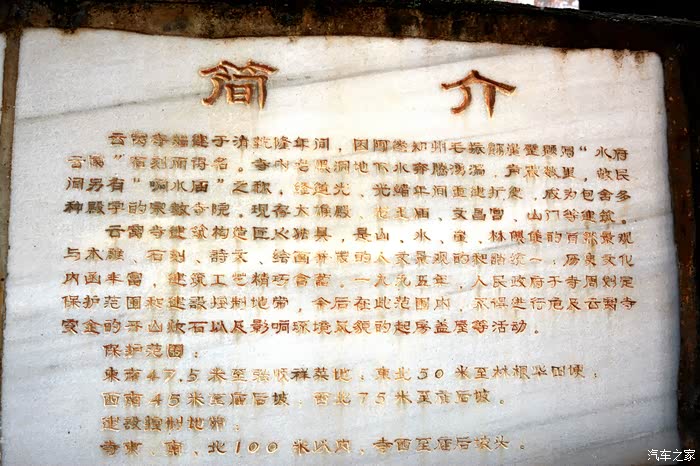 简 介
云窝寺始建于清乾隆年间，因阿迷知州毛振 洞壁题 "水府
云窝"石刻而得名。寺内老黑洞地下水奔腾汤涌，声 数里，故民
间另有"响水庙"之称，经道光、光绪年间重建扩架，成为包含多
种殿宇的宗教寺院。现存大雄殿、龙王庙、文昌宫、山门等建筑。
云窝寺建筑构造匠心独具，是山、水、崖、林偎集的自然景观
与木雕、石刻、诗文、绘画并萃的人文景观的和谐统一；历史文化
内函丰富，建筑工艺精巧含蓄。一九九五年，人民政府于寺周划定
保护范围和建设控制地带，今后在此范围内，不得进行危及云窝寺
安全的开山炸石以及影响环境风貌的起房盖屋等活动。
保护范围：
东南47.5米至 顺祥菜地；东北50米至林振华田埂；
西南45米至庙后坡；西北75米至庙后坡。
建设控制地带：
寺东、南、北100米以内，寺西至庙后坡头。
汽车之家